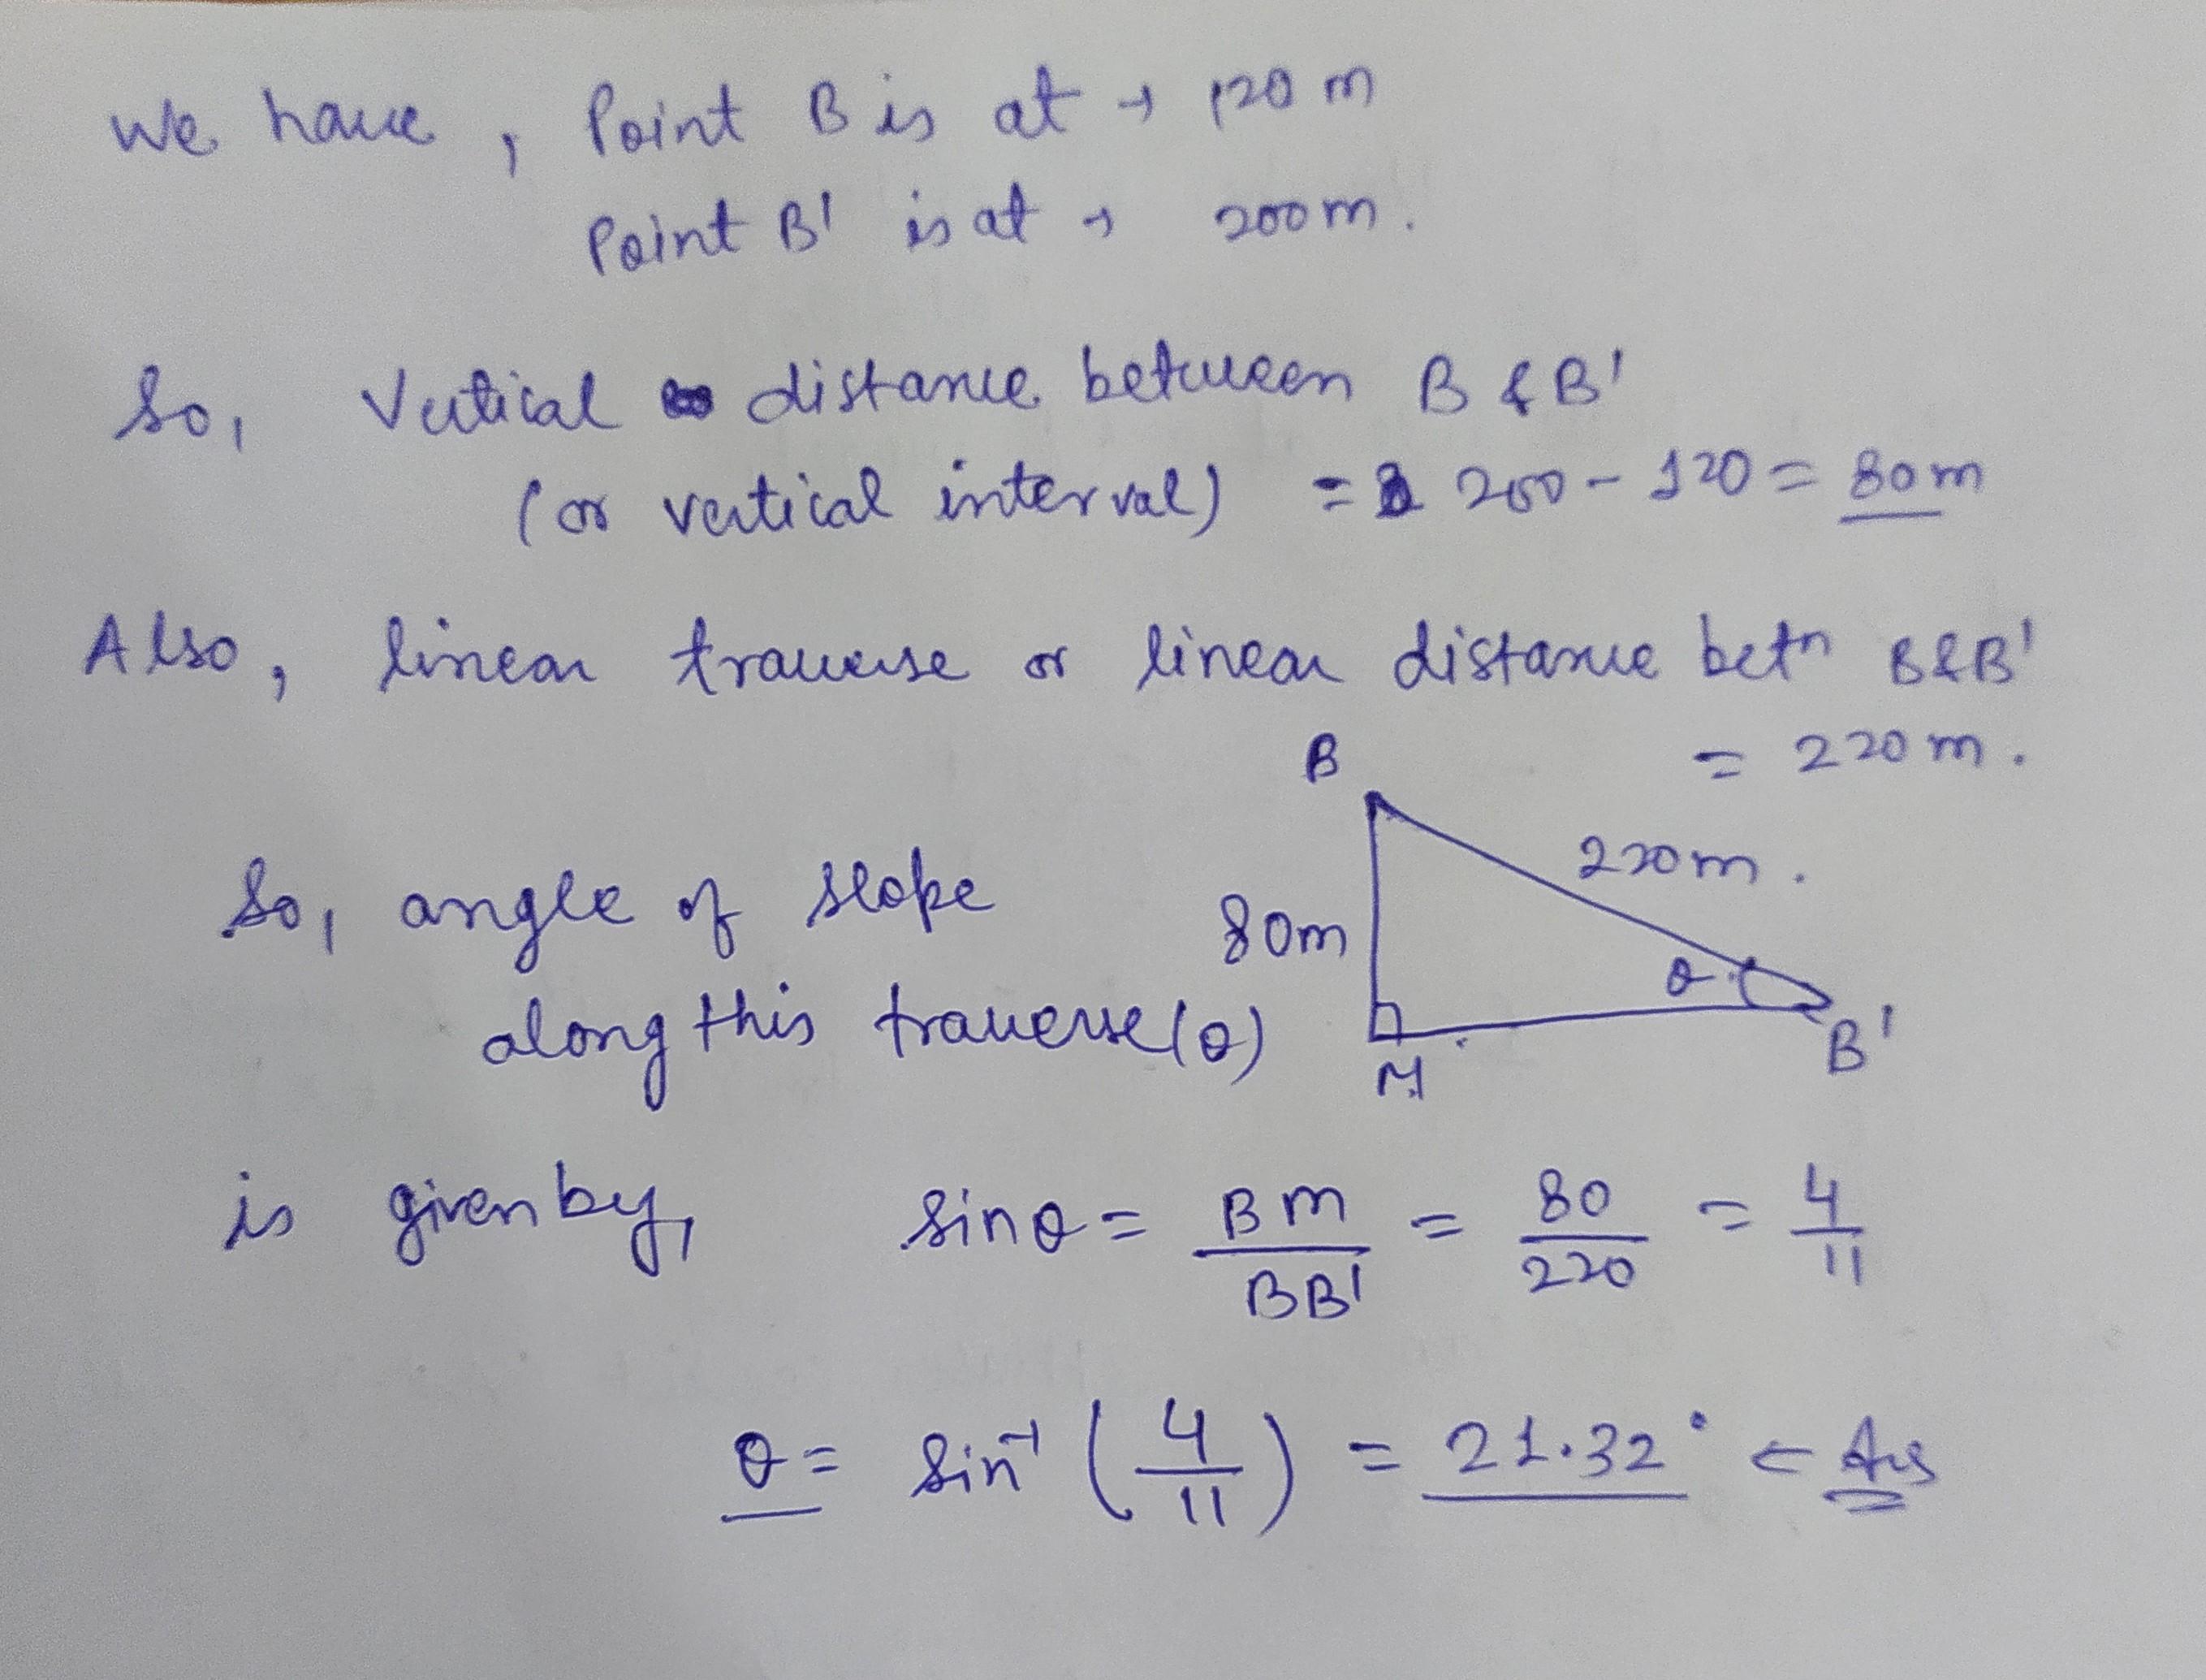 We have, Point B is at → 120 m
Point B' is at → 200m.
So, Vertical distance between B & B'
(or vertical interval) = 200 - 120 = 80m
Also, linear traverse or linear distance betn B&B'
= 220 m.
B
220m.
So, angle of slope
80m
θ
along this traverse (θ)
B'
M
is given by, sinθ = BM/BB' = 80/220 = 4/11
θ = sin⁻¹ (4/11) = 21.32° ← Ans